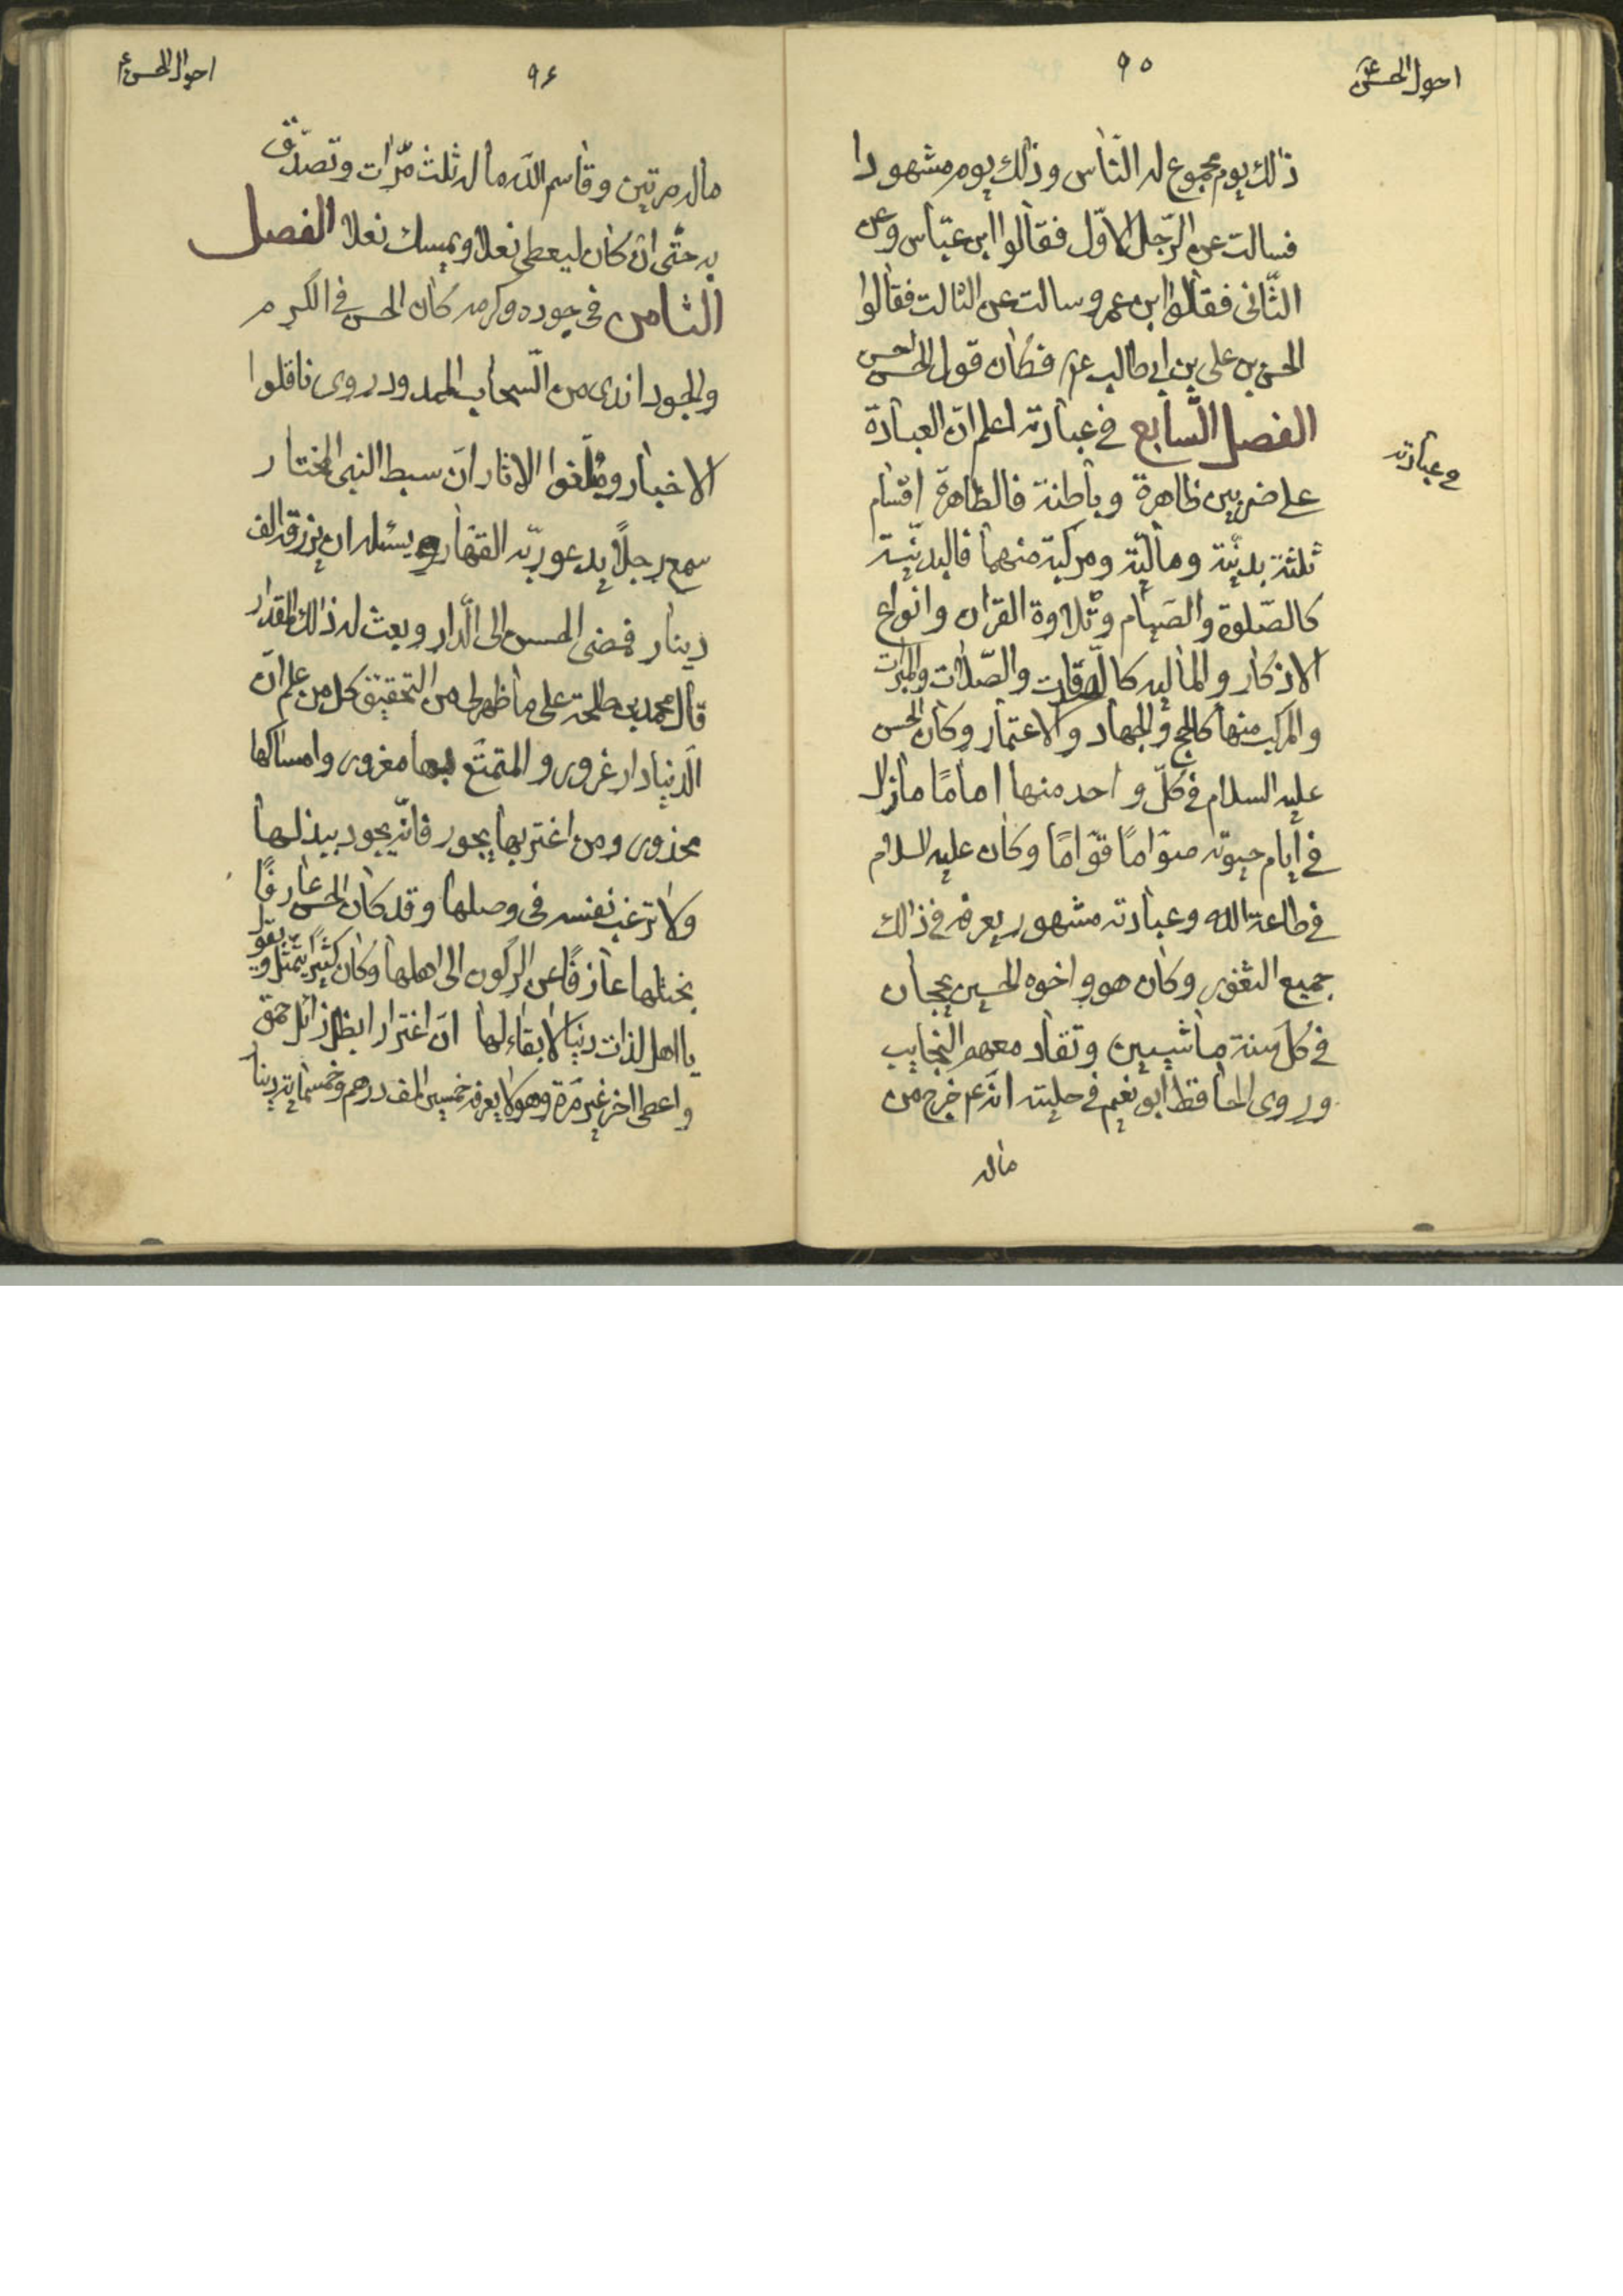 احوال الحسن ع
٩٥
ذلك يوم مجموع له الناس وذلك يوم مشهودا
فسالت عن الرّجل الاوّل فقالوا ابن عبّاس وعن
الثّانى فقالوا ابن عمر وسالت عن الثالث فقالوا
الحسن بن على بن ابى طالب ع فكان قول الحسن احسن
الفصل السّابع فى عبادته اعلم انّ العبادة
وعبادته
على ضربين ظاهرة وباطنة فالظاهرة اقسام
ثلثة بدنيّة وماليّة ومركبة منهما فالبدنيّة
كالصّلوة والصّيام وتلاوة القران وانواع
الاذكار والماليه كالصدقات والصّلات والمبرّات
والمركب منها كالحج والجهاد والاعتمار وكان الحسن
عليه السلام فى كلّ واحد منها امامًا مازال
فى ايام حيوته صوّامًا قوّامًا وكان عليه السلام
فى طاعة الله وعبادته مشهور يعرفه فى ذالك
جميع الثغور وكان هو واخوه الحسين يحجان
فى كل سنة ماشيين وتقاد معهم النجايب
وروى الحافظ ابو نعيم فى حليته انّه ع خرج من
ماله
٩٦
احوال الحسن ع
ماله مرتين وقاسم الله ماله ثلث مرّات وتصدّق
به حتّى ان كان ليعطى نعلا ويمسك نعلا الفصل
الثامن فى جوده وكرمه كان الحسن فى الكرم
والجود اندى من السّحاب الممدود روى ناقلوا
الاخبار ومبلّغوا الاثار انّ سبط النبى المختار
سمع رجلاً يدعو ربّه القهار ويسئله ان يرزقه الف
دينار فمضى الحسن الى الدّار وبعث له ذالك المقدار
قال محمد بن طلحة على ما ظهر لى من التحقيق كل من علم انّ
الدّنيا دار غرور والمتمتّع بها مغرور وامساكها
محذور ومن اغتر بها يحور فانّه يجود ببذلها
ولا ترغب نفسه فى وصلها وقد كان الحسن عارفًا
بختلها عازفًا عن الركون الى اهلها وكان كثيرًا يتمثّل ويقول
يا اهل لذات دنيا لا بقاء لها انّ اغترارا بظل زائل حمق
واعطى اخر غير مرّة وهو لا يعرفه خمسين الف درهم وخمسماية دينار